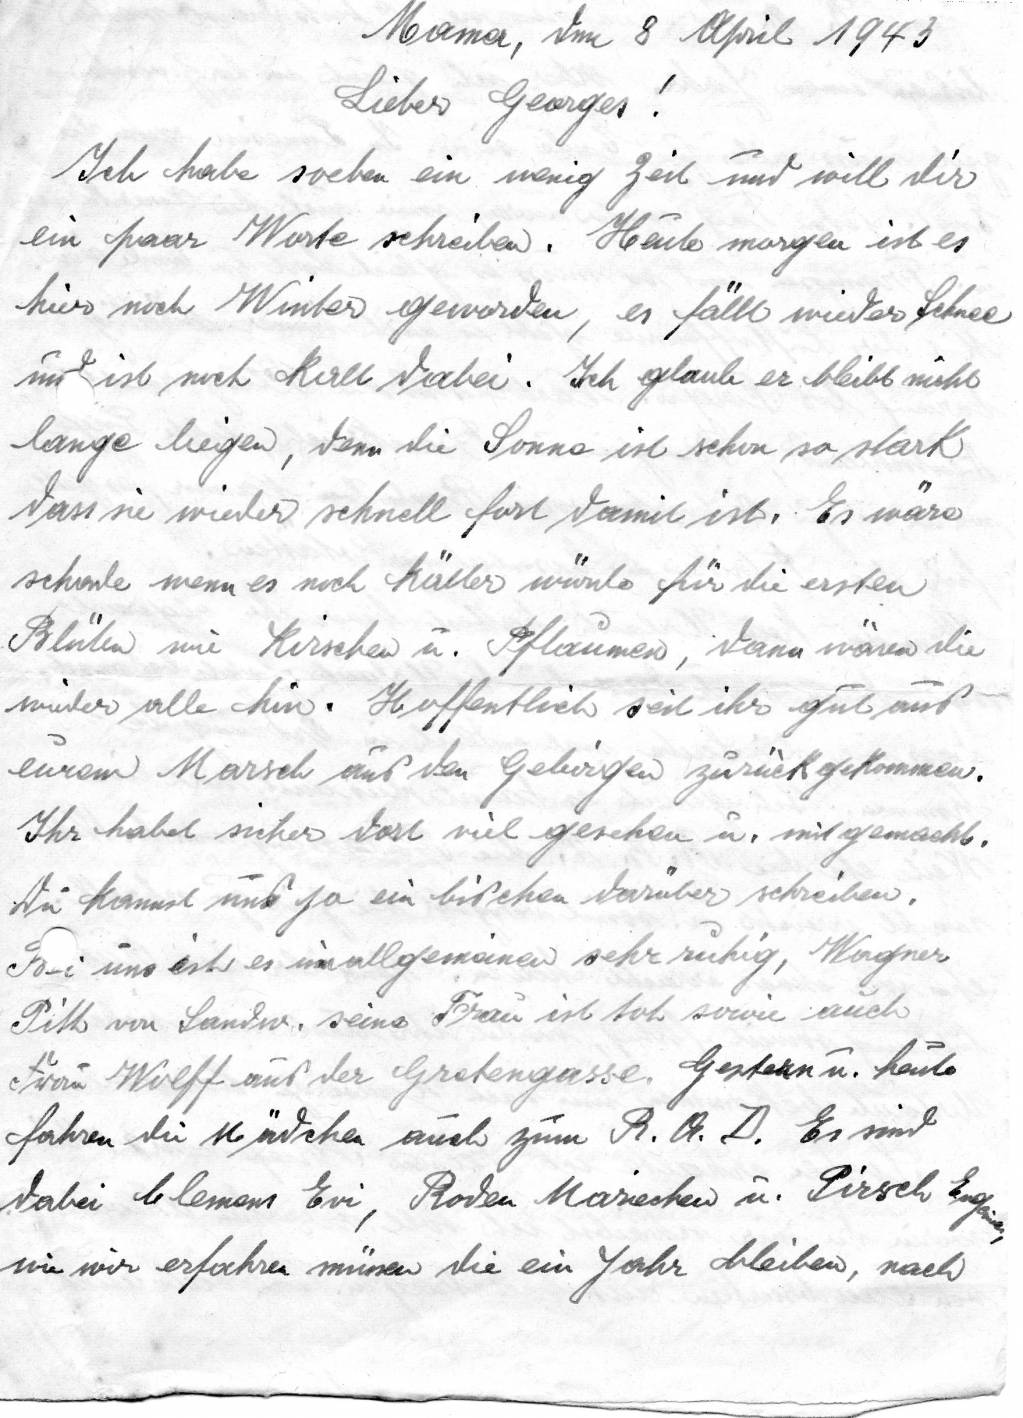 Mamer, den 8 April 1943
Lieber Georges!
Ich habe soeben ein wenig Zeit und will dir
ein paar Worte schreiben. Heute morgen ist es
hier noch Winter geworden, es fällt wieder Schnee
und ist noch kalt dabei. Ich glaube er bleibt nicht
lange liegen, denn die Sonne ist schon so stark
dass sie wieder schnell fort damit ist. Es wäre
schade wenn es noch kälter würde für die ersten
Blüten wie Kirschen u. Pflaumen, dann wären die
wieder alle hin. Hoffentlich seit ihr gut aus
eurem Marsch aus den Gebirgen zurückgekommen.
Ihr habet sicher dort viel gesehen u. mitgemacht.
Du kannst uns ja ein bischen darüber schreiben.
Bei uns ist es im allgemeinen sehr ruhig, Wagner
Pitt von Landw. seine Frau ist tot sowie auch
Frau Wolff aus der Gretengasse. Gestern u. heute
fahren die Mädchen auch zum R. A. D. Es sind
dabei Clemens Evi, Roden Mariechen u. Pirsch Eugenie,
wie wir erfahren müssen die ein Jahr bleiben, nach